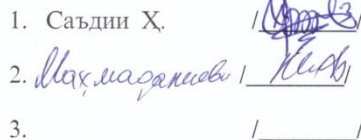 1. Саъдии Ҳ. / /
2. Махмаданиеви / /
3. / /